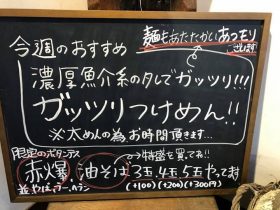 麺もあたたかいあつもり
できます!
今週のおすすめ
濃厚魚介系のタレでガッツリ!!!
ガッツリつけめん!!
※太めんの為お時間頂きます…
限定のボタンデス
赤爆 油そば →特盛を買てね!!
3玉、4玉、5玉やってます
(+100)(+200)(+300円)